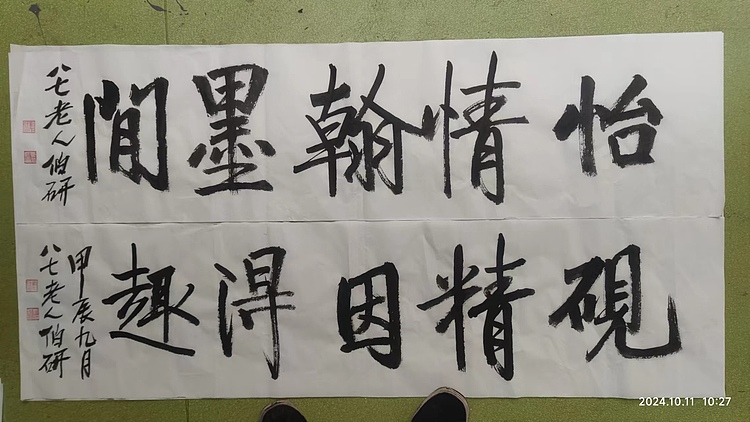 怡情翰墨間
八七老人伯研
硯精因得趣
甲辰九月
八七老人伯研
2024.10.11 10:27